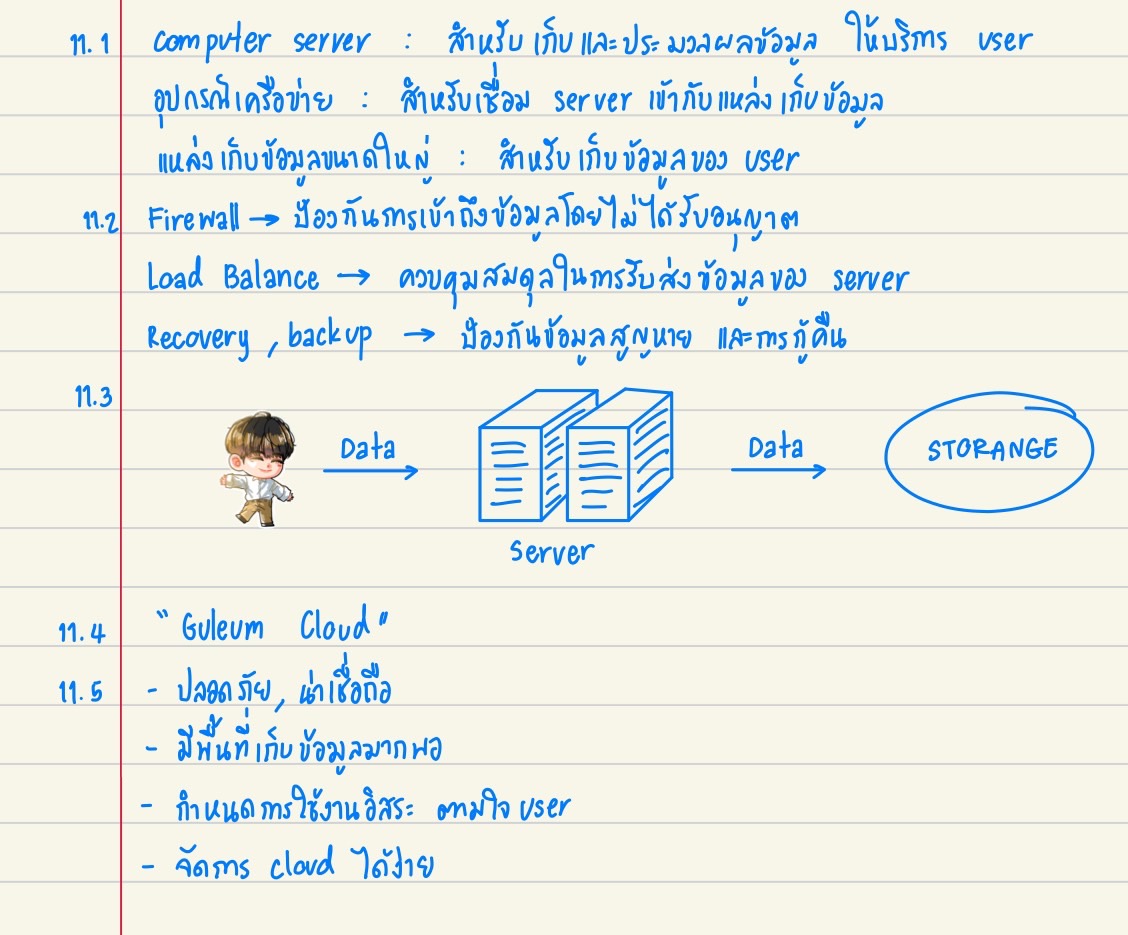 11.1 computer server : สำหรับเก็บและประมวลผลข้อมูล ให้บริการ user
อุปกรณ์เครือข่าย : สำหรับเชื่อม server เข้ากับแหล่งเก็บข้อมูล
แหล่งเก็บข้อมูลขนาดใหญ่ : สำหรับเก็บข้อมูลของ user
11.2 Firewall → ป้องกันการเข้าถึงข้อมูลโดยไม่ได้รับอนุญาต
Load Balance → ควบคุมสมดุลในการรับส่งข้อมูลของ server
Recovery , backup → ป้องกันข้อมูลสูญหาย และการกู้คืน
11.3
Data → Data → STORANGE
Server
11.4 "Guleum Cloud"
11.5 - ปลอดภัย, น่าเชื่อถือ
- มีพื้นที่เก็บข้อมูลมากพอ
- กำหนดการใช้งานอิสระ ตามใจ user
- จัดการ cloud ได้ง่าย